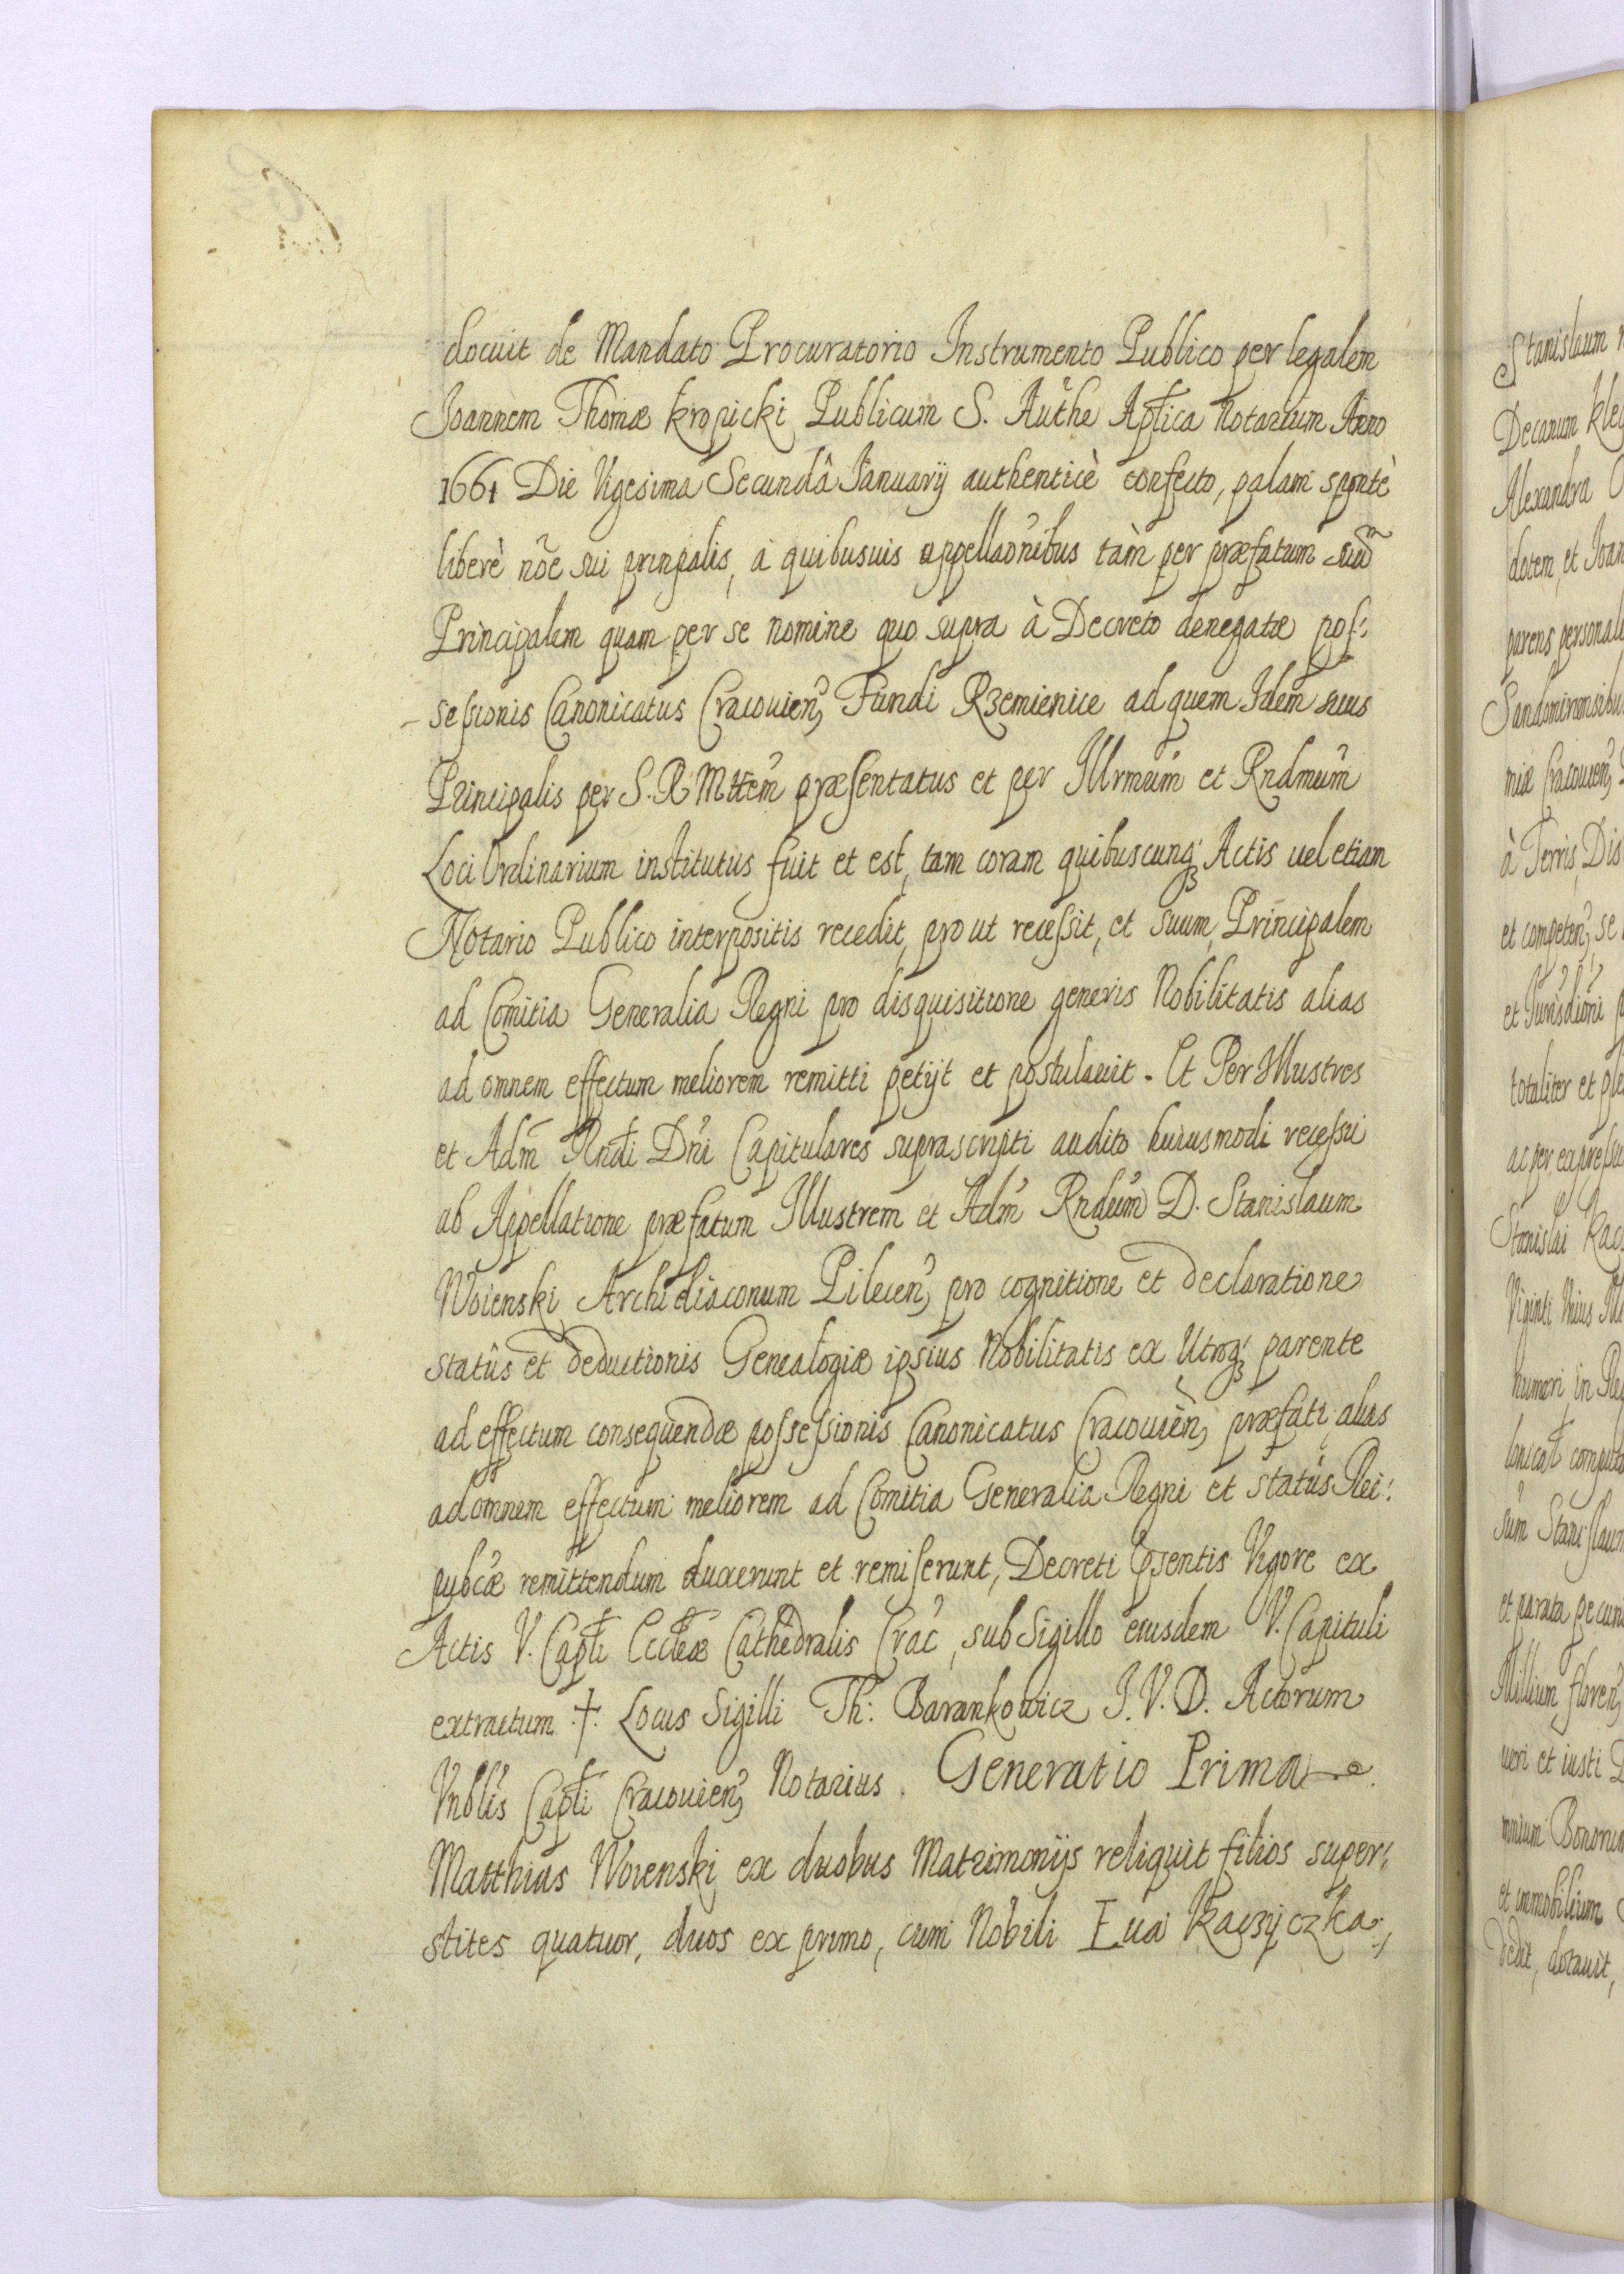 docuit de Mandato Procuratorio Instrumento Publico per legalem
Joannem Thomæ Kropicki Publicum S. Authẽ Aptica Notarium Anno
1661 Die Vigesima Secundâ Januarij authenticè confecto, palam spontè
liberè nõe sui prinpalis, a quibusuis appellaõnibus tàm per præfatum suũ
Principalem quam per se nomine quo supra à Decreto denegatæ pos:
sessionis Canonicatus Cracouien, Fundi Rzemienice ad quem Idem suus
Principalis per S. R. Mttem præsentatus et per Illrmum et Rndmum
Loci Ordinarium institutus fuit et est, tam coram quibuscunq₃ Actis uel etiam
Notario Publico interpositis recedit, prout recessit, et suum Principalem
ad Comitia Generalia Regni pro disquisitione generis Nobilitatis alias
ad omnem effectum meliorem remitti petijt et postulauit. Et Per Illustres
et Adm̃ Rndi Dni Capitulares suprascripti audito huiusmodi recessu
ab Appellatione præfatum Illustrem et Adm Rndum D. Stanislaum
Woienski Archidiaconum Pilecen, pro cognitione et declaratione
statûs et deductionis Genealogiæ ipsius Nobilitatis ex Utroq₃ parente
ad effectum consequendæ possessionis Canonicatus Cracouien, præfati, alias
ad omnem effectum meliorem ad Comitia Generalia Regni et statûs Rei:
pubcæ remittendum duxerunt et remiserunt, Decreti psentis Vigore ex
Actis V. Capti Eccleæ Cathedralis Crac, sub Sigillo eiusdem V. Capituli
extractum .†. Locus Sigilli Th: Barankowicz J. V. D. Actorum
Vnblis Capti Cracouien, Notarius. Generatio Prima
Matthias Woienski ex duobus Matrimonijs reliquit filios super:
stites quatuor, duos ex primo, cum Nobili Eua Kaczyczka,
Stanislaum
Decanum
Alexandra
dotem, et
parens
Sandomirensibus
miæ Cracouien,
à Terris,
et competen, se
et Jurisdioni
totaliter et
ac per
Stanislai
Viginti Vnius
humeri, in
sum Stanislaum
et parata
Millium floren,
ueri et iusti
mnium Bonorum
et immobilium
dedit, dotauit,